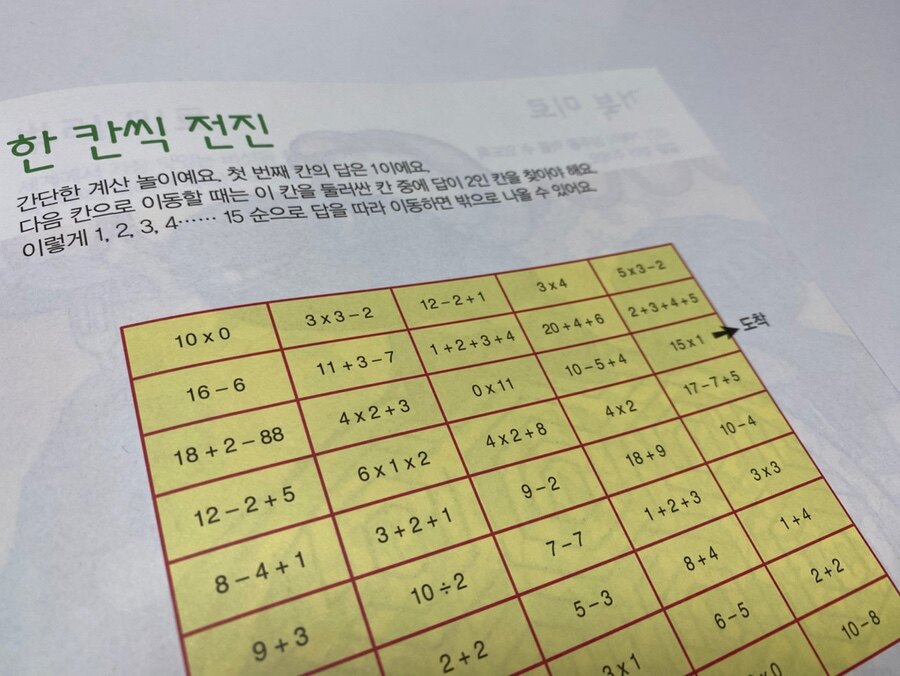 한 칸씩 전진
간단한 계산 놀이예요. 첫 번째 칸의 답은 1이에요.
다음 칸으로 이동할 때는 이 칸을 둘러싼 칸 중에 답이 2인 칸을 찾아야 해요.
이렇게 1, 2, 3, 4…… 15 순으로 답을 따라 이동하면 밖으로 나올 수 있어요.
10 x 0 3 x 3 – 2 12 – 2 + 1 3 x 4 5 x 3 – 2
16 – 6 11 + 3 – 7 1 + 2 + 3 + 4 20 + 4 + 6 2 + 3 + 4 + 5
18 + 2 – 88 4 x 2 + 3 0 x 11 10 – 5 + 4 15 x 1 도착
12 – 2 + 5 6 x 1 x 2 4 x 2 + 8 4 x 2 17 – 7 + 5
8 – 4 + 1 3 + 2 + 1 9 – 2 18 + 9 10 – 4
9 + 3 10 ÷ 2 7 – 7 1 + 2 + 3 3 x 3
2 + 2 5 – 3 8 + 4 1 + 4
3 x 1 6 – 5 2 + 2
10 – 8